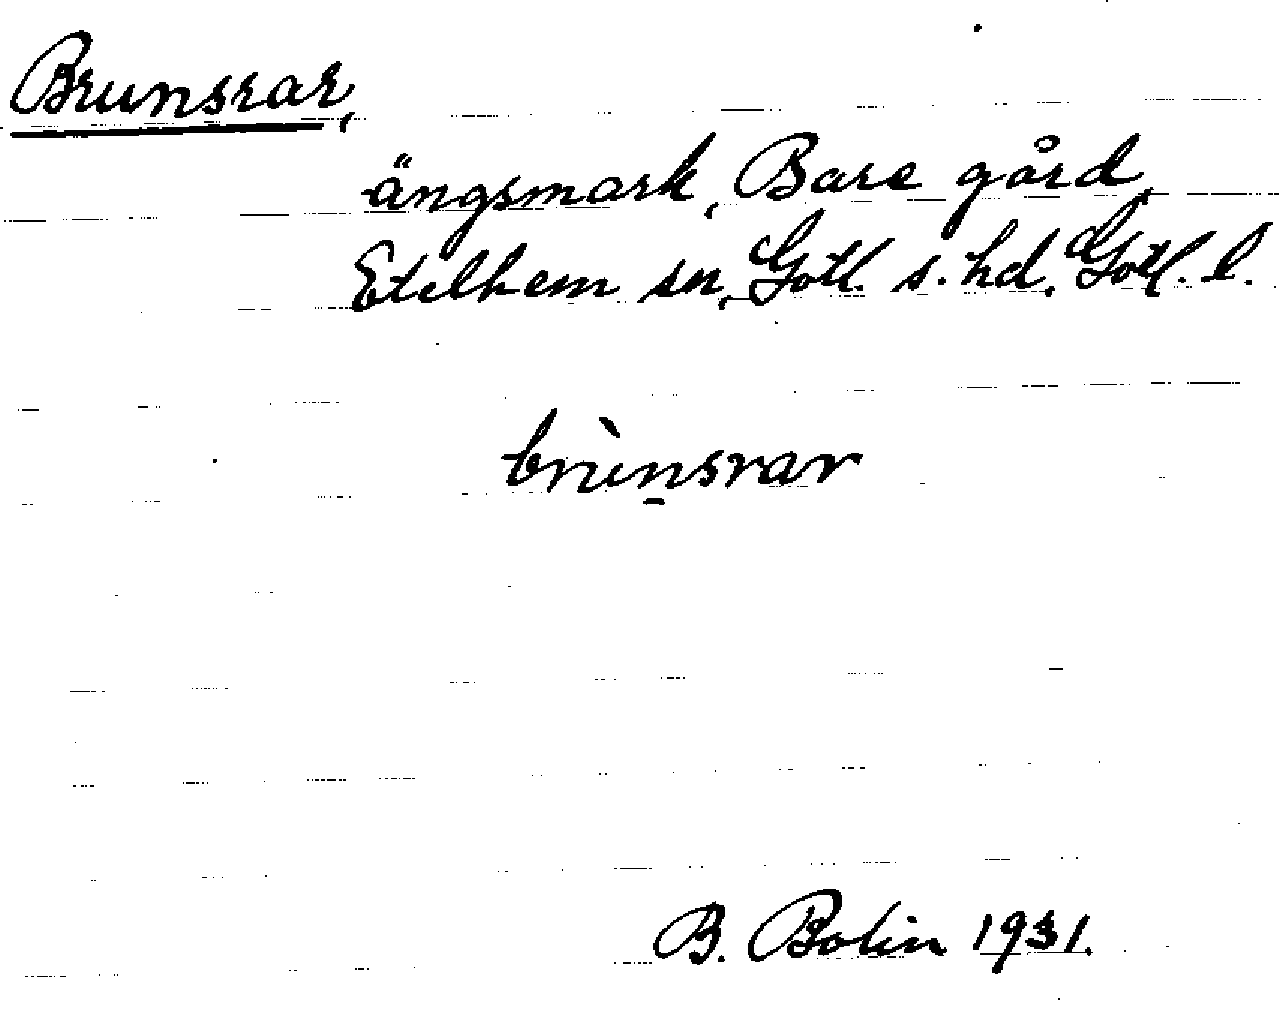 Brunsrar,
ängsmark, Bare gård,
Etelhem sn, Gotl. s. hd, Gotl. l.
brùn̠srar
B. Bolin 1931.